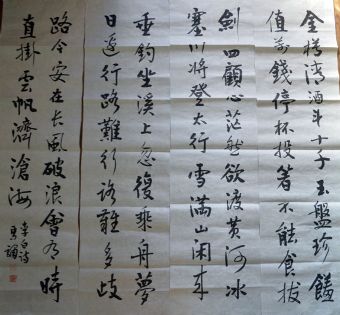 金樽清酒斗十千玉盤珍饈
值萬錢停杯投箸不能食拔
劍四顧心茫然欲渡黄河冰
塞川將登太行雪滿山閑來
垂釣坐溪上忽復乘舟夢
日邊行路難行路難多歧
路今安在長風破浪會有時
直掛雲帆濟滄海
李白詩